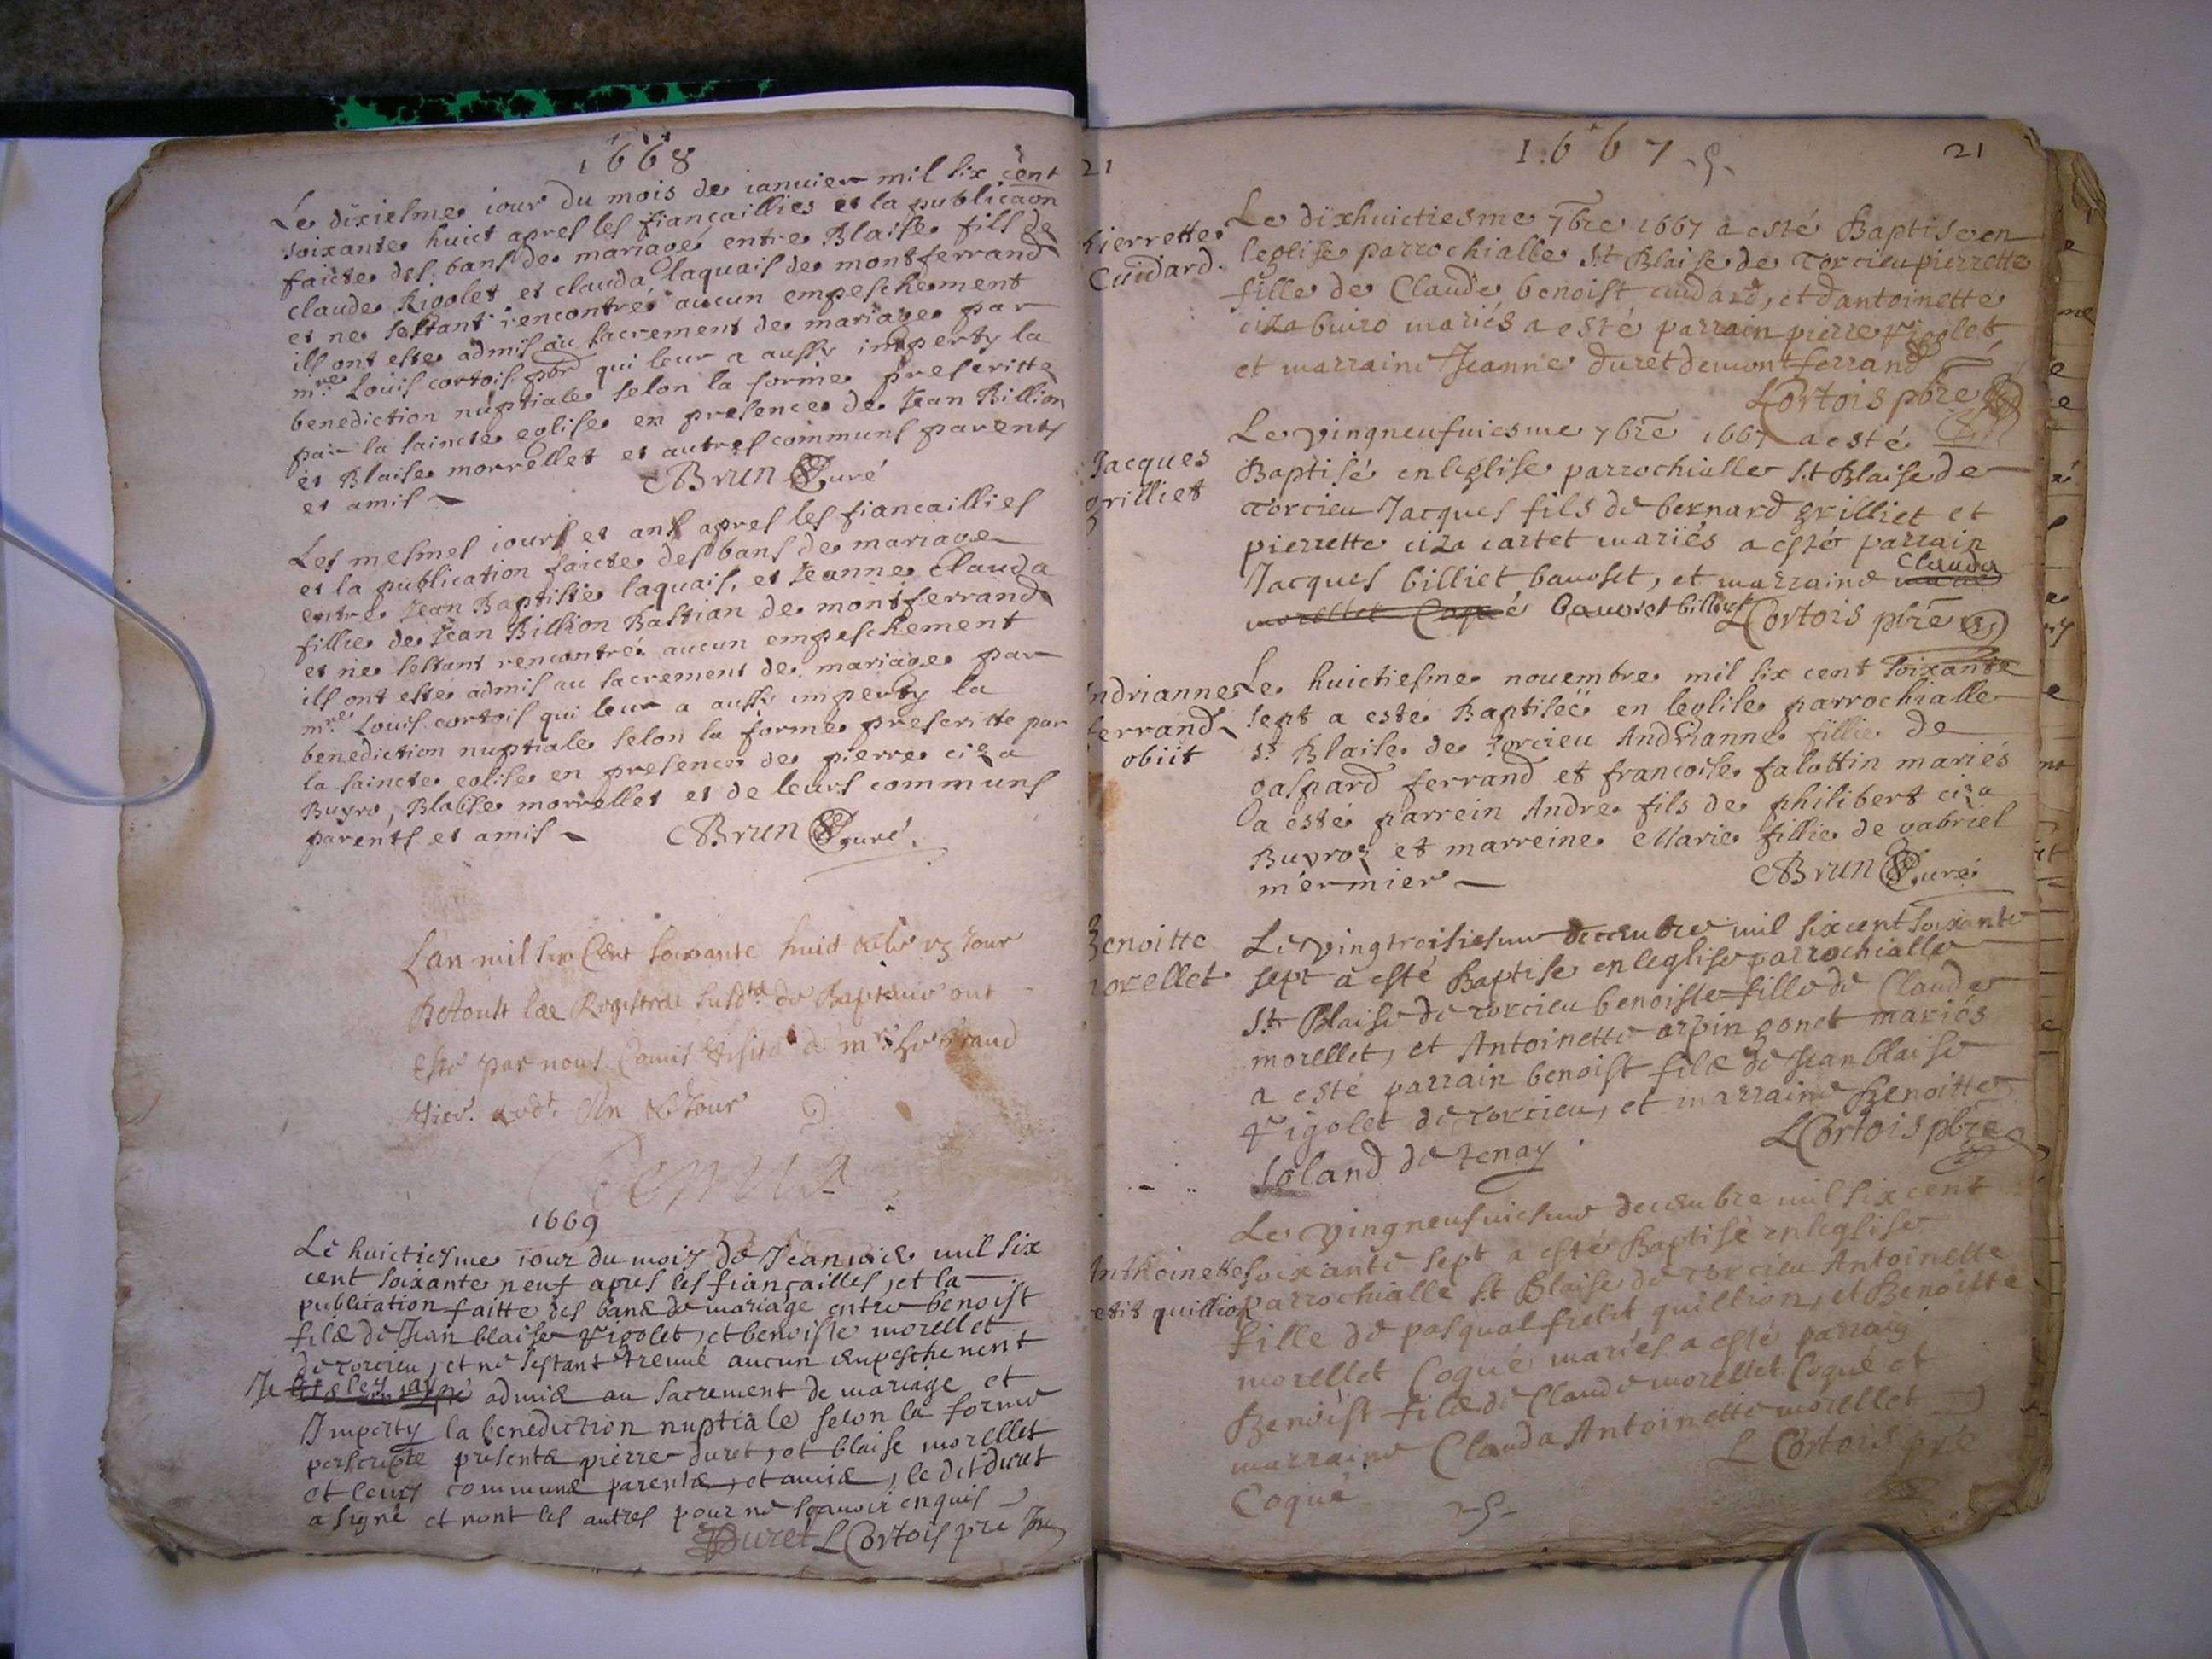 1668
Le dixiesme iour du mois de ianuier mil six cent
soixante huict apres les fiançaillies et la publicaõn
faicte des bans de mariage entre Blaise fils de
claude Rigolet et clauda laquais de montferrand
et ne sestant rencontré aucun empeschement
ils ont este admis au sacrement de mariage par
mre Louis cortois pbre qui leur a aussy imperty la
benediction nuptiale selon la forme prescritte
par la saincte eglise en presence de Jean Billion
et Blaise morrellet et autres communs parents
et amis
Brun Curé
Les mesmes iours et ans apres les fiancaillies
et la publication faicte des bans de mariage
entre Jean Baptiste laquais, et Jeanne Clauda
fillie de Jean Billion Bastian de montferrand
et ne sestant rencontré aucun empeschement
ils ont esté admis au sacrement de mariage par
mre Louis cortois qui leur a aussy imperty la
benediction nuptiale selon la forme prescritte par
la saincte eglise en presence de pierre ciza
Buyro, Blaise morrellet et de leurs communs
parents et amis
Brun Curé
Lan mil six Cent soixante huict iour
Registre de Baptesme ont
Esté par nous
1669
Le huictiesme iour du mois de Jeanuier mil six
cent soixante neuf apres les fiançailles, et la
publication faitte des bans de mariage entre benoist
fils de Jean blaise Rigolet, et benoiste morellet
de torcieu, et ne sestant treuué aucun empeschement
Je admis au sacrement de mariage et
Imperty la benediction nuptiale selon la forme
perscripte presents pierre duret, et blaise morellet
et leurs communs parents, et amis, le dit duret
a signé et nont les autres pour ne scauoir enquis
Duret LCortois pre
1667
21
21
Pierrette
Cuidard
Le dixhuictiesme 7bre 1667 a esté Baptise en
leglise parrochialle St Blaise de torcieu pierrette
fille de Claude benoist cudard, et dantoinette
ciza buiro mariés a esté parrain pierre Rigolet
et marraine Jeanne duret de montferrand
LCortois pbre
Jacques
grilliet
Le vingneufuiesme 7bre 1667 a esté
Baptisé en leglise parrochialle St Blaise de
torcieu Jacques fils de bernard grilliet et
pierrette ciza cartet mariés a esté parrain
Jacques billiet bauoset, et marraine Clauda
morellet Coqué bauoset billiet LCortois pbre
Andrianne
ferrand
obiit
Le huictiesme nouembre mil six cent soixante
sept a este Baptiséé en leglise parrochialle
St Blaise de torcieu Andrianne fillie de
gaspard ferrand et francoise falottin mariés
a esté parrein Andre fils de philibert ciza
Buyroz et marreine Marie fillie de gabriel
mermier
Brun Curé
Benoitte
morellet
Le vingtroisiesme decembre mil six cent soixante
sept a esté Baptise en leglise parrochialle
St Blaise de torcieu benoiste fille de Claude
morellet, et Antoinette arpin gonet mariés
a esté parrain benoist fils de Jean blaise
Rigolet de torcieu, et marraine Benoitte
soland de tenay
LCortois pbre
Anthoinette
fretit quillion
Le vingneufuiesme decembre mil six cent
soixante sept a esté Baptisé en leglise
parrochialle St Blaise de torcieu Antoinette
fille de pasqual fretit quillion, et Benoitte
morellet Coqué mariés a esté parrain
Benoist fils de Claude morellet Coqué et
marraine Clauda Antoinette morellet
Coqué
L Cortois pre